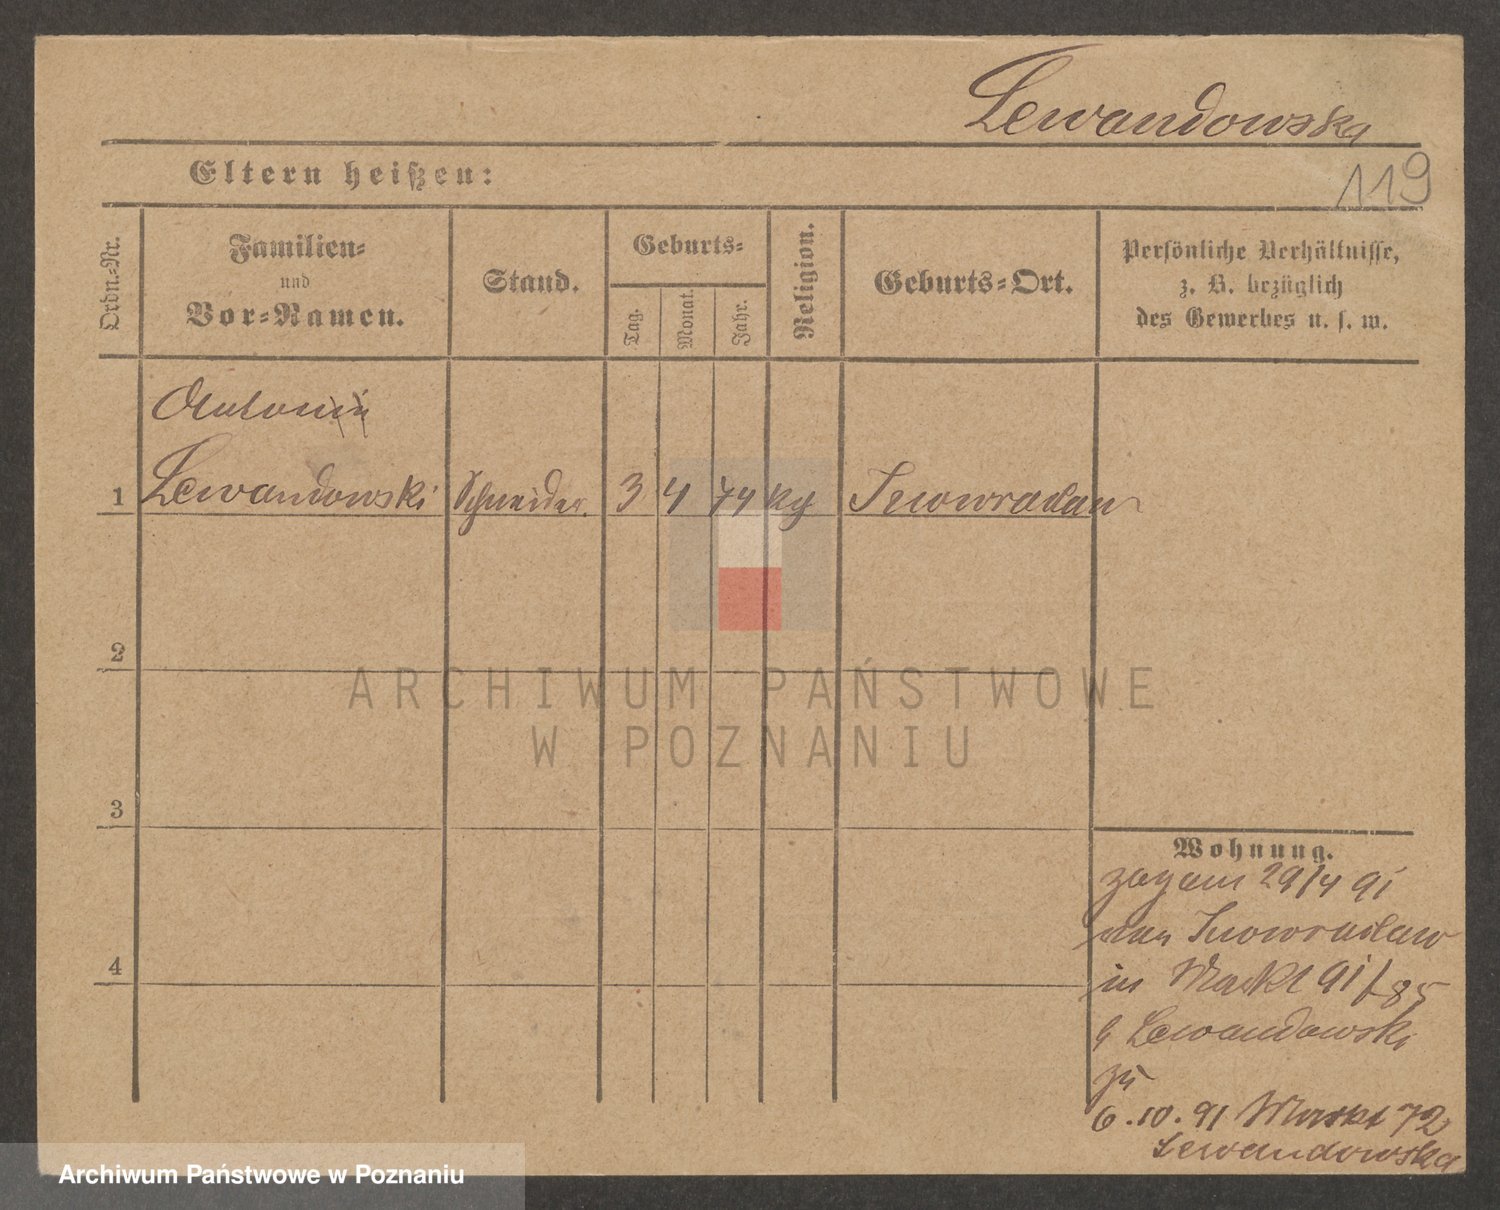 Lewandowska
119
Eltern heißen:
Ordn.-Nr.
Familien-
und
Vor-Namen.
Stand.
Geburts-
Tag.
Monat.
Jahr.
Religion.
Geburts-Ort.
Persönliche Verhältnisse,
z. B. bezüglich
des Gewerbes u. s. w.
Antonii
1 Lewandowski Schneider. 3 4 74 kg Inowrazlaw
2
3
4
Wohnung.
zog am 29/4 91
Inowrazlaw
in Markt 91/85
Lewandowski
zu
6.10.91 Markt 72
Lewandowska
ARCHIWUM PAŃSTWOWE
W POZNANIU
Archiwum Państwowe w Poznaniu